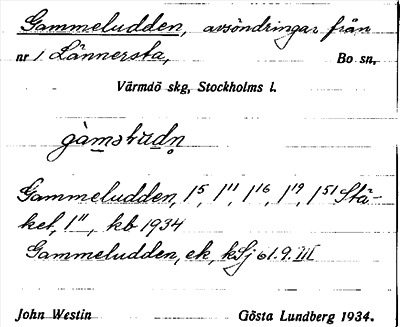 Gammeludden, avsöndringar från
nr 1 Lännersta, Bo sn,
Värmdö skg, Stockholms l.
Gammeludden, 1⁵, 1¹¹, 1¹⁶, 1¹⁹, 1⁵¹ Stä-
ket, 1", kb 1934
Gammeludden, ek, kSj 61.9.III
John Westin Gösta Lundberg 1934.